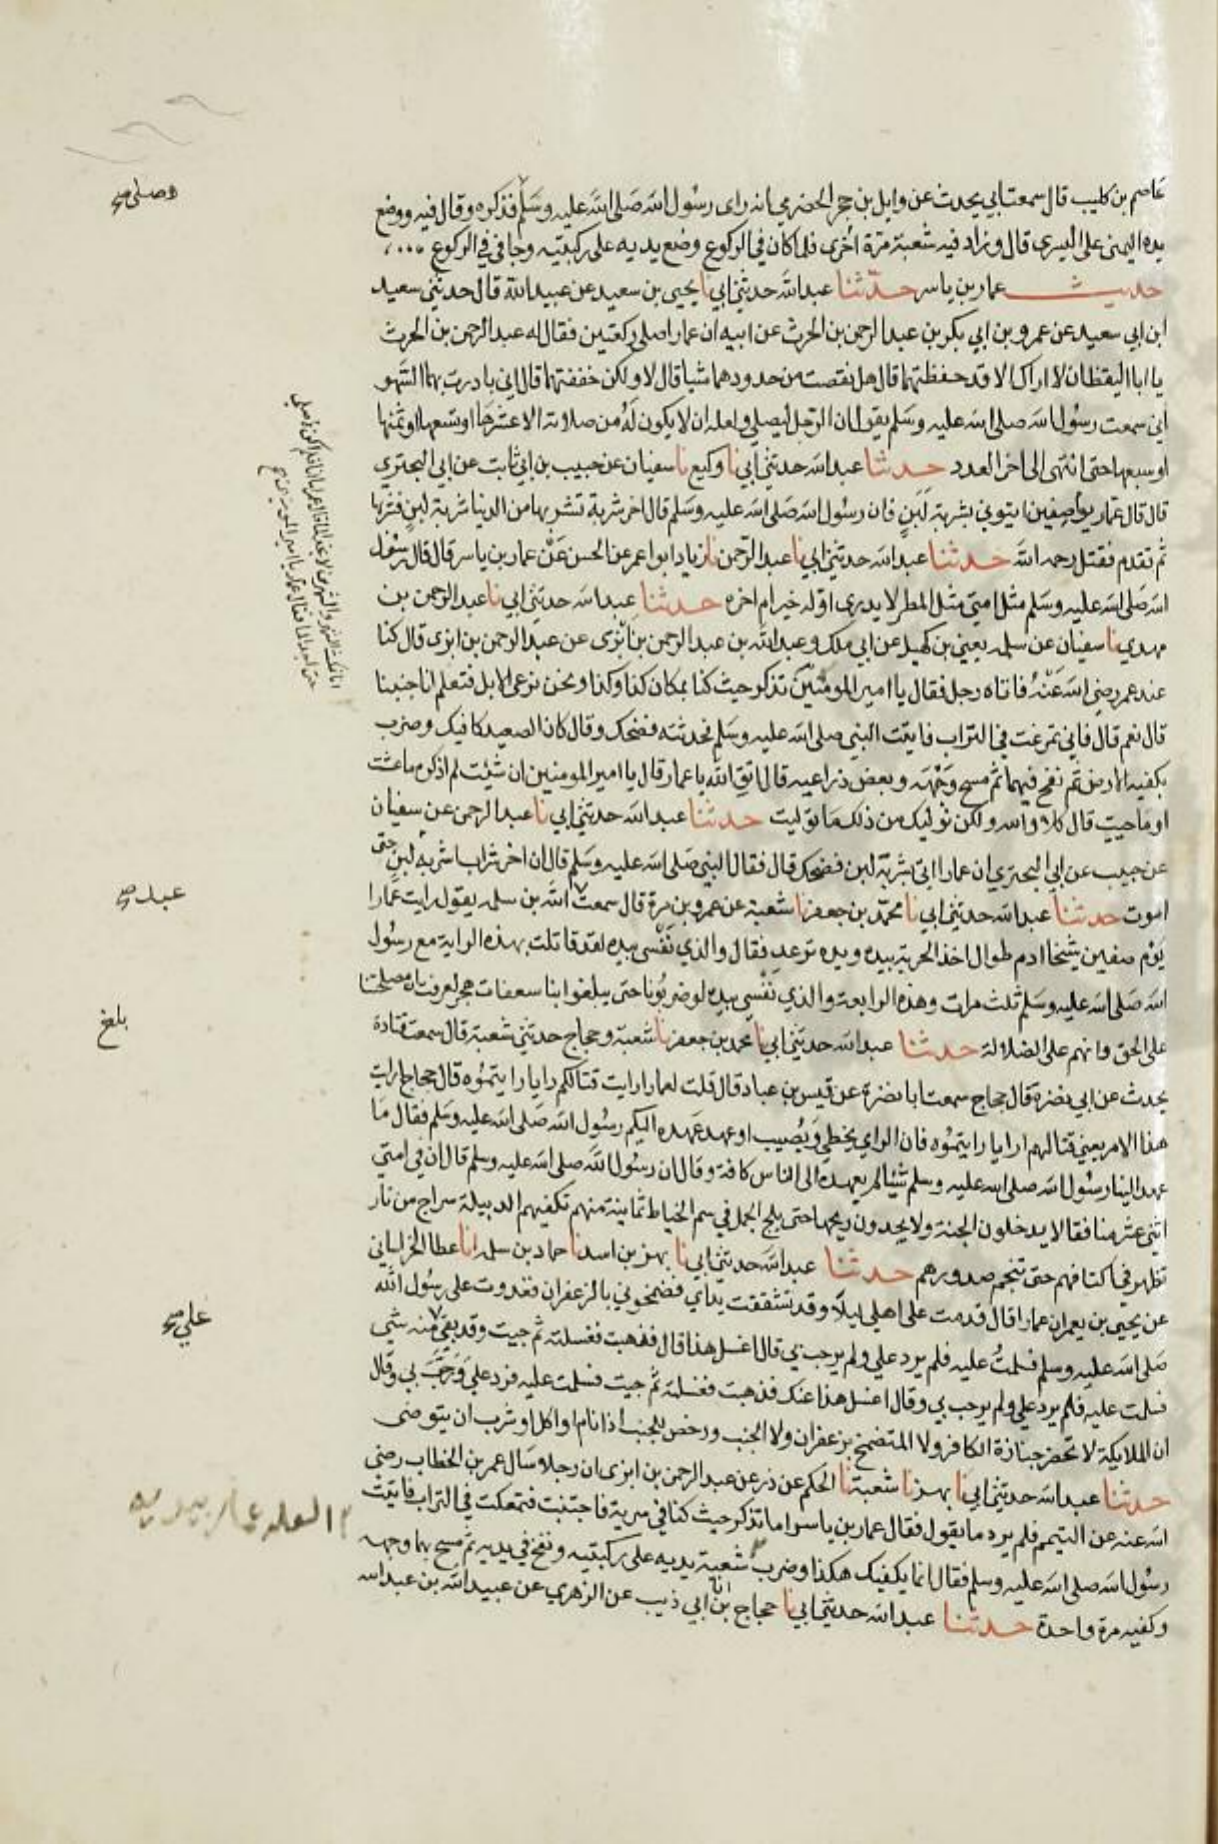 عاصم بن كليب قال سمعت ابي يحدث عن وايل بن حجر الحضرمي انه راى رسول الله صلى الله عليه وسلم فذكره وقال فيه ووضع
يده اليمنى على اليسرى قال وزاد فيه شعبة مرة اخرى فلما كان في الركوع وضع يديه على ركبتيه وجافى في الركوع
حديث عمار بن ياسر حدثنا عبد الله حدثني ابي نا يحيى بن سعيد عن عبيد الله قال حدثني سعيد
ابن ابي سعيد عن عمرو بن ابي بكر بن عبد الرحمن بن الحرث عن ابيه ان عمارا صلى ركعتين فقال له عبد الرحمن بن الحرث
يا ابا اليقظان لا اراك الا قد خففتهما قال هل نقصت من حدودهما شيا قال لا ولكن خففتهما قال اني بادرت بهما السهو
اني سمعت رسول الله صلى الله عليه وسلم يقول ان الرجل ليصلي ولعله ان لا يكون له من صلاته الا عشرها او تسعها او ثمنها
او سبعها حتى انتهى الى اخر العدد حدثنا عبد الله حدثني ابي نا وكيع نا سفيان عن حبيب بن ابي ثابت عن ابي البختري
قال قال عمار يوم صفين ايتوني بشربة لبن فان رسول الله صلى الله عليه وسلم قال اخر شربة تشربها من الدنيا شربة لبن فشربها
ثم تقدم فقتل رحمه الله حدثنا عبد الله حدثني ابي نا عبد الرحمن نا زياد ابو عمر عن الحسن عن عمار بن ياسر قال قال رسول
الله صلى الله عليه وسلم مثل امتي مثل المطر لا يدرى اوله خير ام اخره حدثنا عبد الله حدثني ابي نا عبد الرحمن بن
مهدي نا سفيان عن سلمه يعني بن كهيل عن ابي ملك وعبد الله بن عبد الرحمن بن ابزى عن عبد الرحمن بن ابزى قال كنا
عند عمر رضي الله عنه فاتاه رجل فقال يا امير المومنين تذكر حيث كنا بمكان كذا وكذا ونحن نرعى الابل فتعلم انا اجنبنا
قال نعم قال فاني تمرغت في التراب فاتيت النبي صلى الله عليه وسلم فحدثته فضحك وقال كان الصعيد كافيك وضرب
بكفيه الارض ثم نفخ فيهما ثم مسح وجهه وبعض ذراعيه قال اتق الله يا عمار قال يا امير المومنين ان شئت لم اذكره ما عشت
او ما حييت قال كلا والله ولكن نوليك من ذلك ما توليت حدثنا عبد الله حدثني ابي نا عبد الرحمن عن سفيان
عن حبيب عن ابي البختري ان عمارا اتي بشربة لبن فضحك قال فقال النبي صلى الله عليه وسلم قال ان اخر شراب اشربه لبن حتى
اموت حدثنا عبد الله حدثني ابي نا محمد بن جعفر نا شعبة عن عمرو بن مرة قال سمعت الله بن سلمه يقول رايت عمارا
يوم صفين شيخا ادم طوال اخذ الحربة بيده ويده ترعد فقال والذي نفسي بيده لقد قاتلت بهذه الراية مع رسول
الله صلى الله عليه وسلم ثلث مرات وهذه الرابعة والذي نفسي بيده لو ضربونا حتى يبلغوا بنا سعفات هجر لعرفت ان مصلحتنا
على الحق وانهم على الضلالة حدثنا عبد الله حدثني ابي نا محمد بن جعفر نا شعبة وحجاج حدثني شعبة قال سمعت قتادة
يحدث عن ابي نضرة قال حجاج سمعت ابا نضرة عن قيس بن عباد قال قلت لعمار ارايت قتالكم رايا رايتموه قال حجاج ارايت
هذا الامر يعني قتالهم ارايا رايتموه فان الراي يخطي ويصيب او عهد عهده اليكم رسول الله صلى الله عليه وسلم فقال ما
عهد الينا رسول الله صلى الله عليه وسلم شيئا لم يعهده الى الناس كافة وقال ان رسول الله صلى الله عليه وسلم قال ان في امتي
اثنى عشر منافقا لا يدخلون الجنة ولا يجدون ريحها حتى يلج الجمل في سم الخياط ثمانية منهم تكفيهم الدبيلة سراج من نار
تظهر في اكتافهم حتى تنجم صدورهم حدثنا عبد الله حدثني ابي نا بهز بن اسد نا حماد بن سلمه انا عطا الخراساني
عن يحيى بن يعمر ان عمارا قال قدمت على اهلي ليلا وقد تشققت يداي فضمخوني بالزعفران فغدوت على رسول الله
صلى الله عليه وسلم فسلمت عليه فلم يرد علي ولم يرحب بي قال اغسل هذا قال فذهبت فغسلته ثم جيت وقد بقي منه شي
فسلمت عليه فلم يرد علي ولم يرحب بي وقال اغسل هذا عنك فذهبت فغسلته ثم جيت فسلمت عليه فرد علي ورحب بي وقال
ان الملايكة لا تحضر جنازة الكافر ولا المتضمخ بزعفران ولا الجنب ورخص للجنب اذا نام او اكل او شرب ان يتوضى
حدثنا عبد الله حدثني ابي نا بهز نا شعبة نا الحكم عن ذر عن عبد الرحمن بن ابزى ان رجلا سال عمر بن الخطاب رضي
الله عنه عن التيمم فلم يرد ما يقول فقال عمار بن ياسر اما تذكر حيث كنا في سرية فاجنبت فتمعكت في التراب فاتيت
رسول الله صلى الله عليه وسلم فقال انما يكفيك هكذا وضرب شعبة يديه على ركبتيه ونفخ في يديه ثم مسح بهما وجهه
وكفيه مرة واحدة حدثنا عبد الله حدثني ابي نا حجاج انا بن ابي ذيب عن الزهري عن عبيد الله بن عبد الله
وصلى صح
عبد صح
بلغ
علي صح